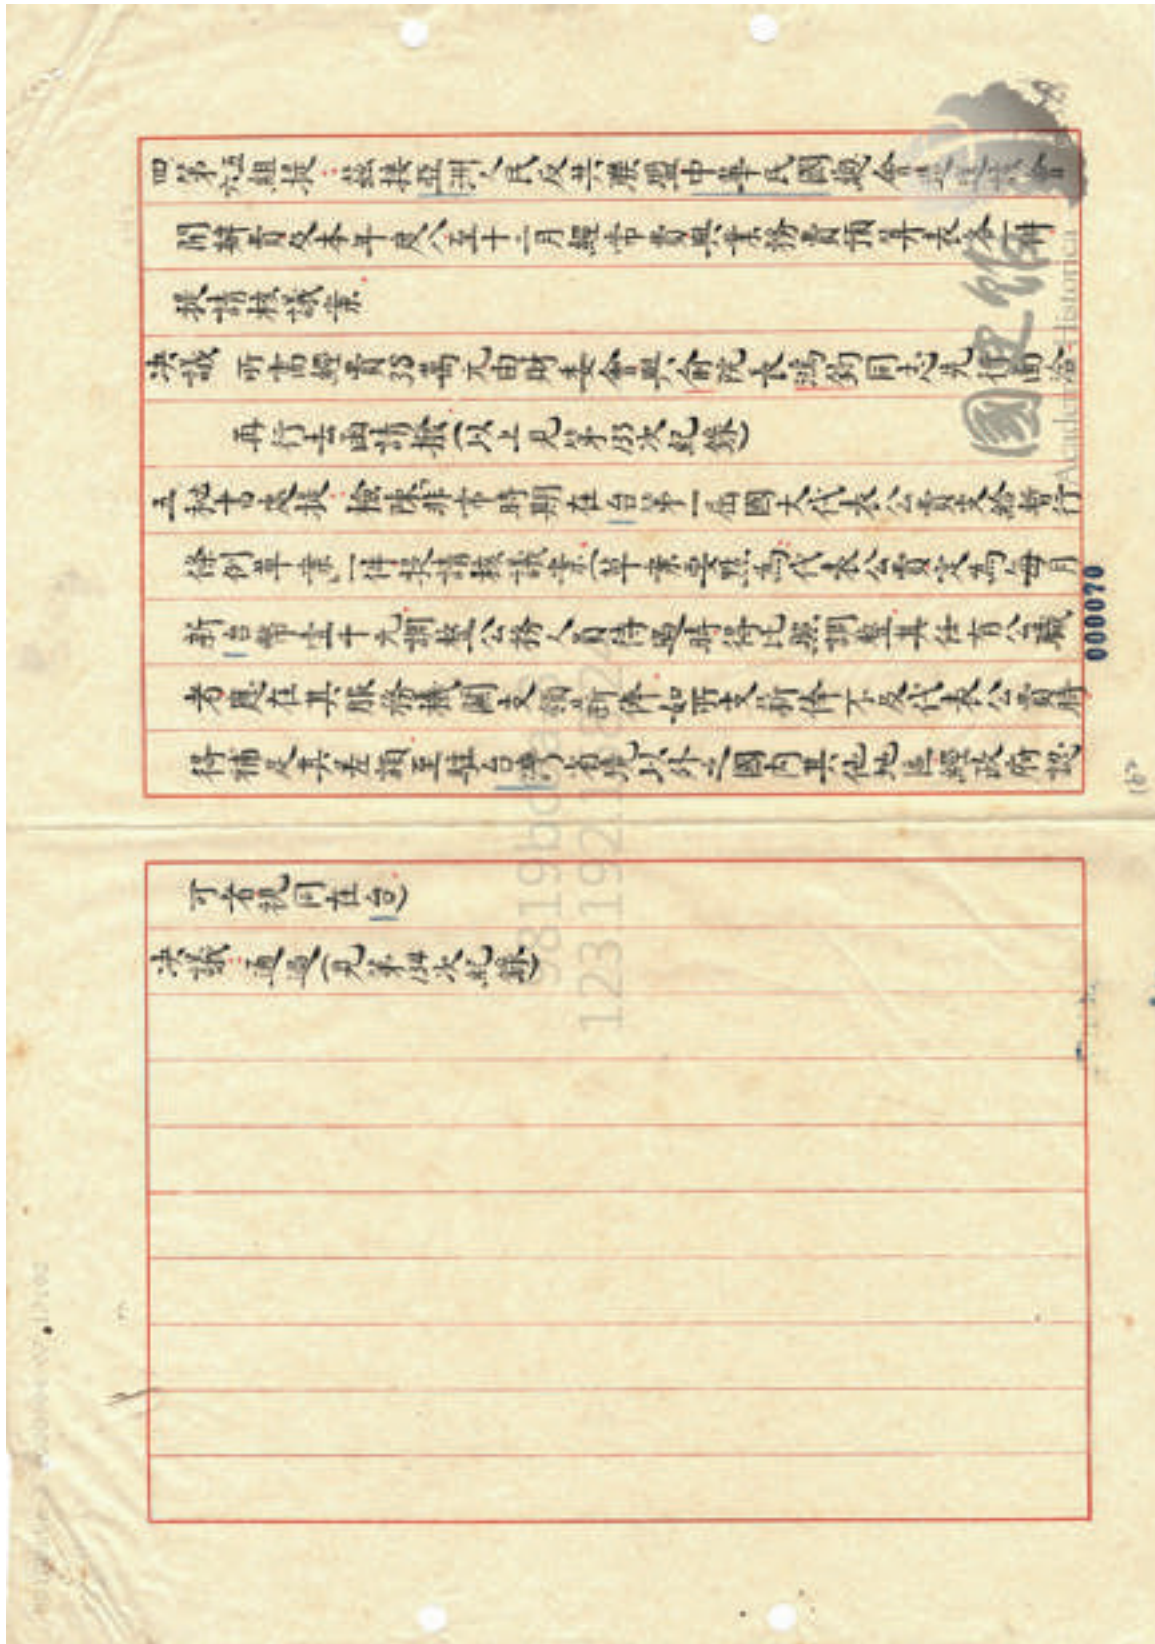 四第五六組提:茲接亞洲人民反共聯盟中華民國總會
開辦費及本年度八至十二月經常費與業務費預算表各一件
提請核議案
決議 所需經費35萬元由財委會與俞院長鴻鈞同志先行面洽
再行去函請撥(以上見第133次紀錄)
五秘書處提:檢陳非常時期在台第一屆國大代表公費支給暫行
條例草案一件提請核議案(草案要點為代表公費定為每月
新台幣壹千元調整公務人員待遇時得比照調整其任有公職
者應在其服務機關支領薪俸如所支薪俸不及代表公費時
得補足其差額至駐台灣省境以外之國內其他地區經政府認
可者視同在台)
決議:通過(見第134次紀錄)
000070
國史館
Academia Historica